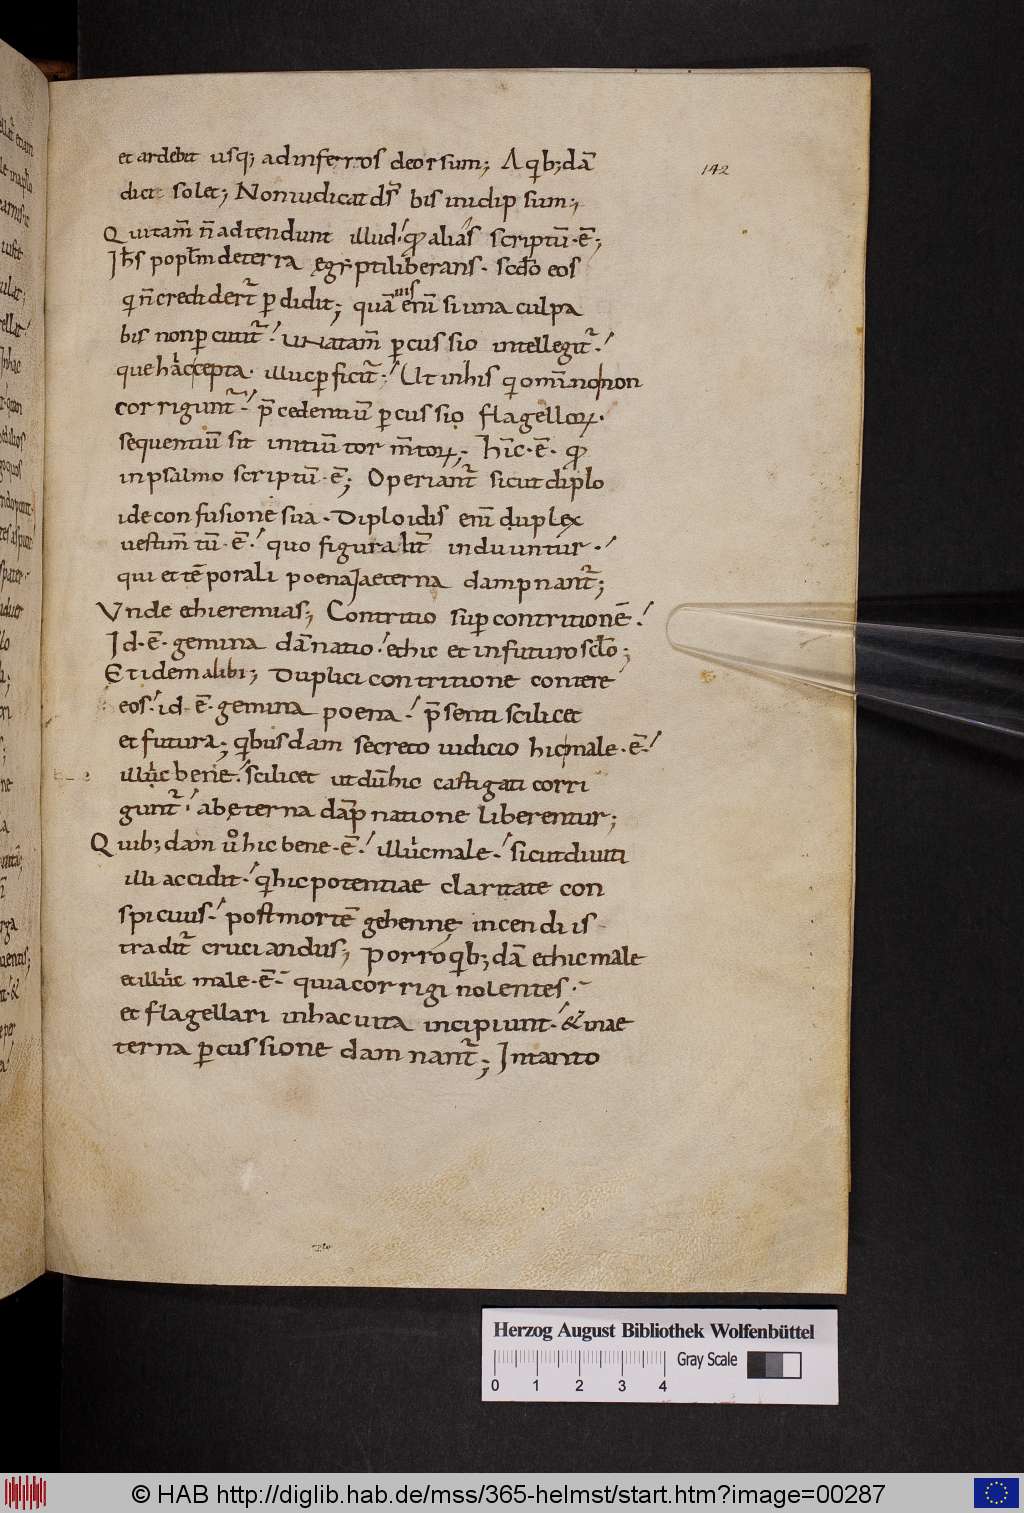 142
et ardebit usq; ad inferos deorsum; A qib; dā
dici solet; Non iudicat dſ̄ bis in idipsum;
Qui tam̄ n̄ adtendunt illud. qđ alias scriptū ē;
Ih̄s popl̄m de terra ęgypti liberans. scd̄o eos
qi n̄ crediderr̄ perdidit; quāuis enī si una culpa
bis non percutit̄. una tam̄ percussio intellegit̄.
que hac cępta. illuc perficit̄. Ut in his qi omīno non
corrigunt̄. p̄cedentiū percussio flagelloꝝ.
sequentiū sit initiū tormt̄oꝝ; hīc ē qđ
in psalmo scriptū ē; Operiant̄ sicut diplo
ide confusione sua. Diploidis enī duplex
uestim̄tū ē. quo figuralit̄ induuntur.
qui et tēporali poena et aeterna dampnant̄;
Unde et hieremias; Contritio super contritionē.
Id ē gemina dānatio. et hic et in futuro scl̄o;
Et idem alibi; Duplici contritione contere
eos. id ē gemina poena. p̄senti scilicet
et futura; qibusdam secreto iudicio hic male ē.
illuc bene. scilicet ut dū hic castigati corri
gunt̄. ab ęterna dāpnatione liberentur;
Quib; dam ů hic bene ē. illuc male. sicut diuiti
illi accidit. qi hic potentiae claritate con
spicuus. post mortē gehennę incendiis
tradit̄ cruciandus; Porro qib; dā et hic male
et illuc male ē. quia corrigi nolentes.
et flagellari in hac uita incipiunt. & in ae
terna percussione damnant̄; In tanto
Herzog August Bibliothek Wolfenbüttel
Gray Scale
0 1 2 3 4
© HAB http://diglib.hab.de/mss/365-helmst/start.htm?image=00287